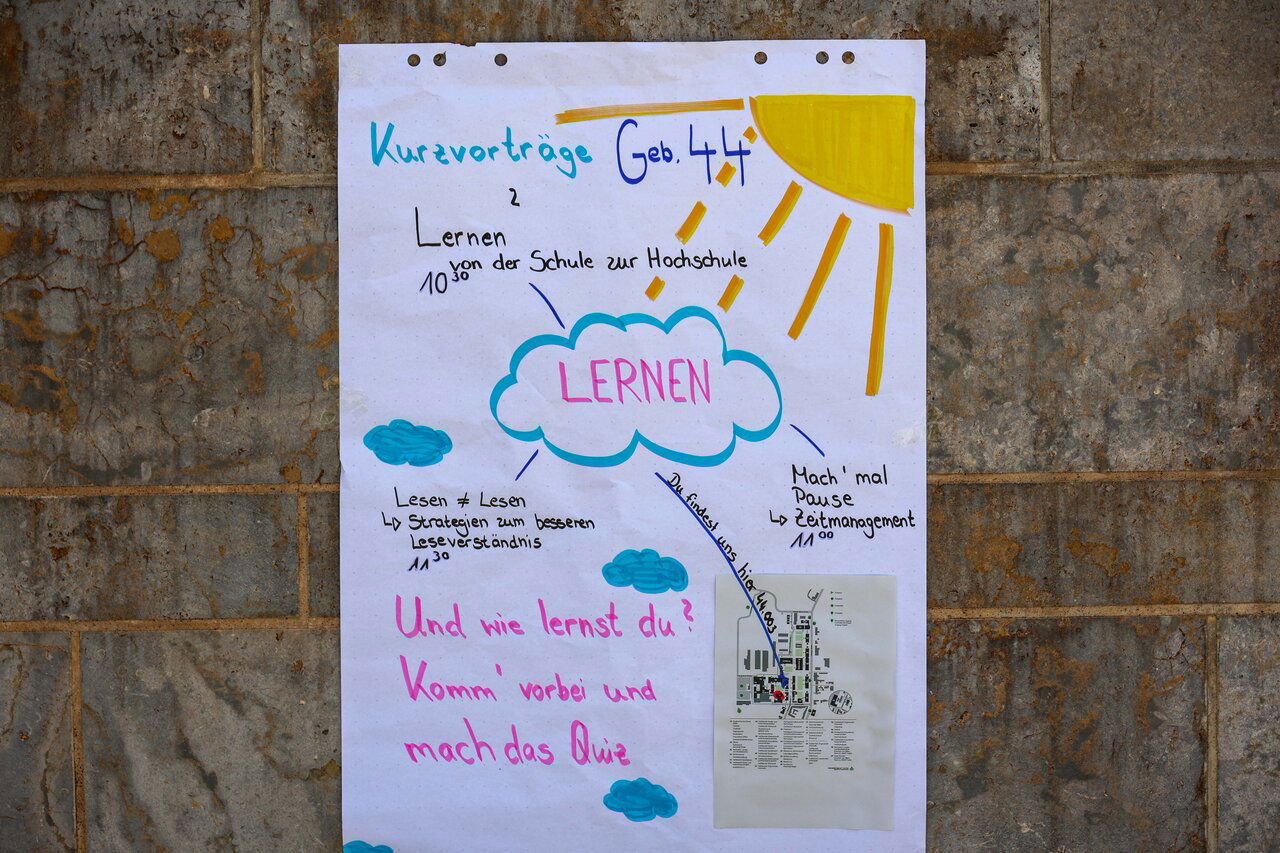 Kurzvorträge Geb. 44
2
Lernen
von der Schule zur Hochschule
10³⁰
LERNEN
Lesen ≠ Lesen
↳ Strategien zum besseren
Leseverständnis
11³⁰
Mach' mal
Pause
↳ Zeitmanagement
11⁰⁰
Du findest uns hier 44.003
Und wie lernst du?
Komm' vorbei und
mach das Quiz